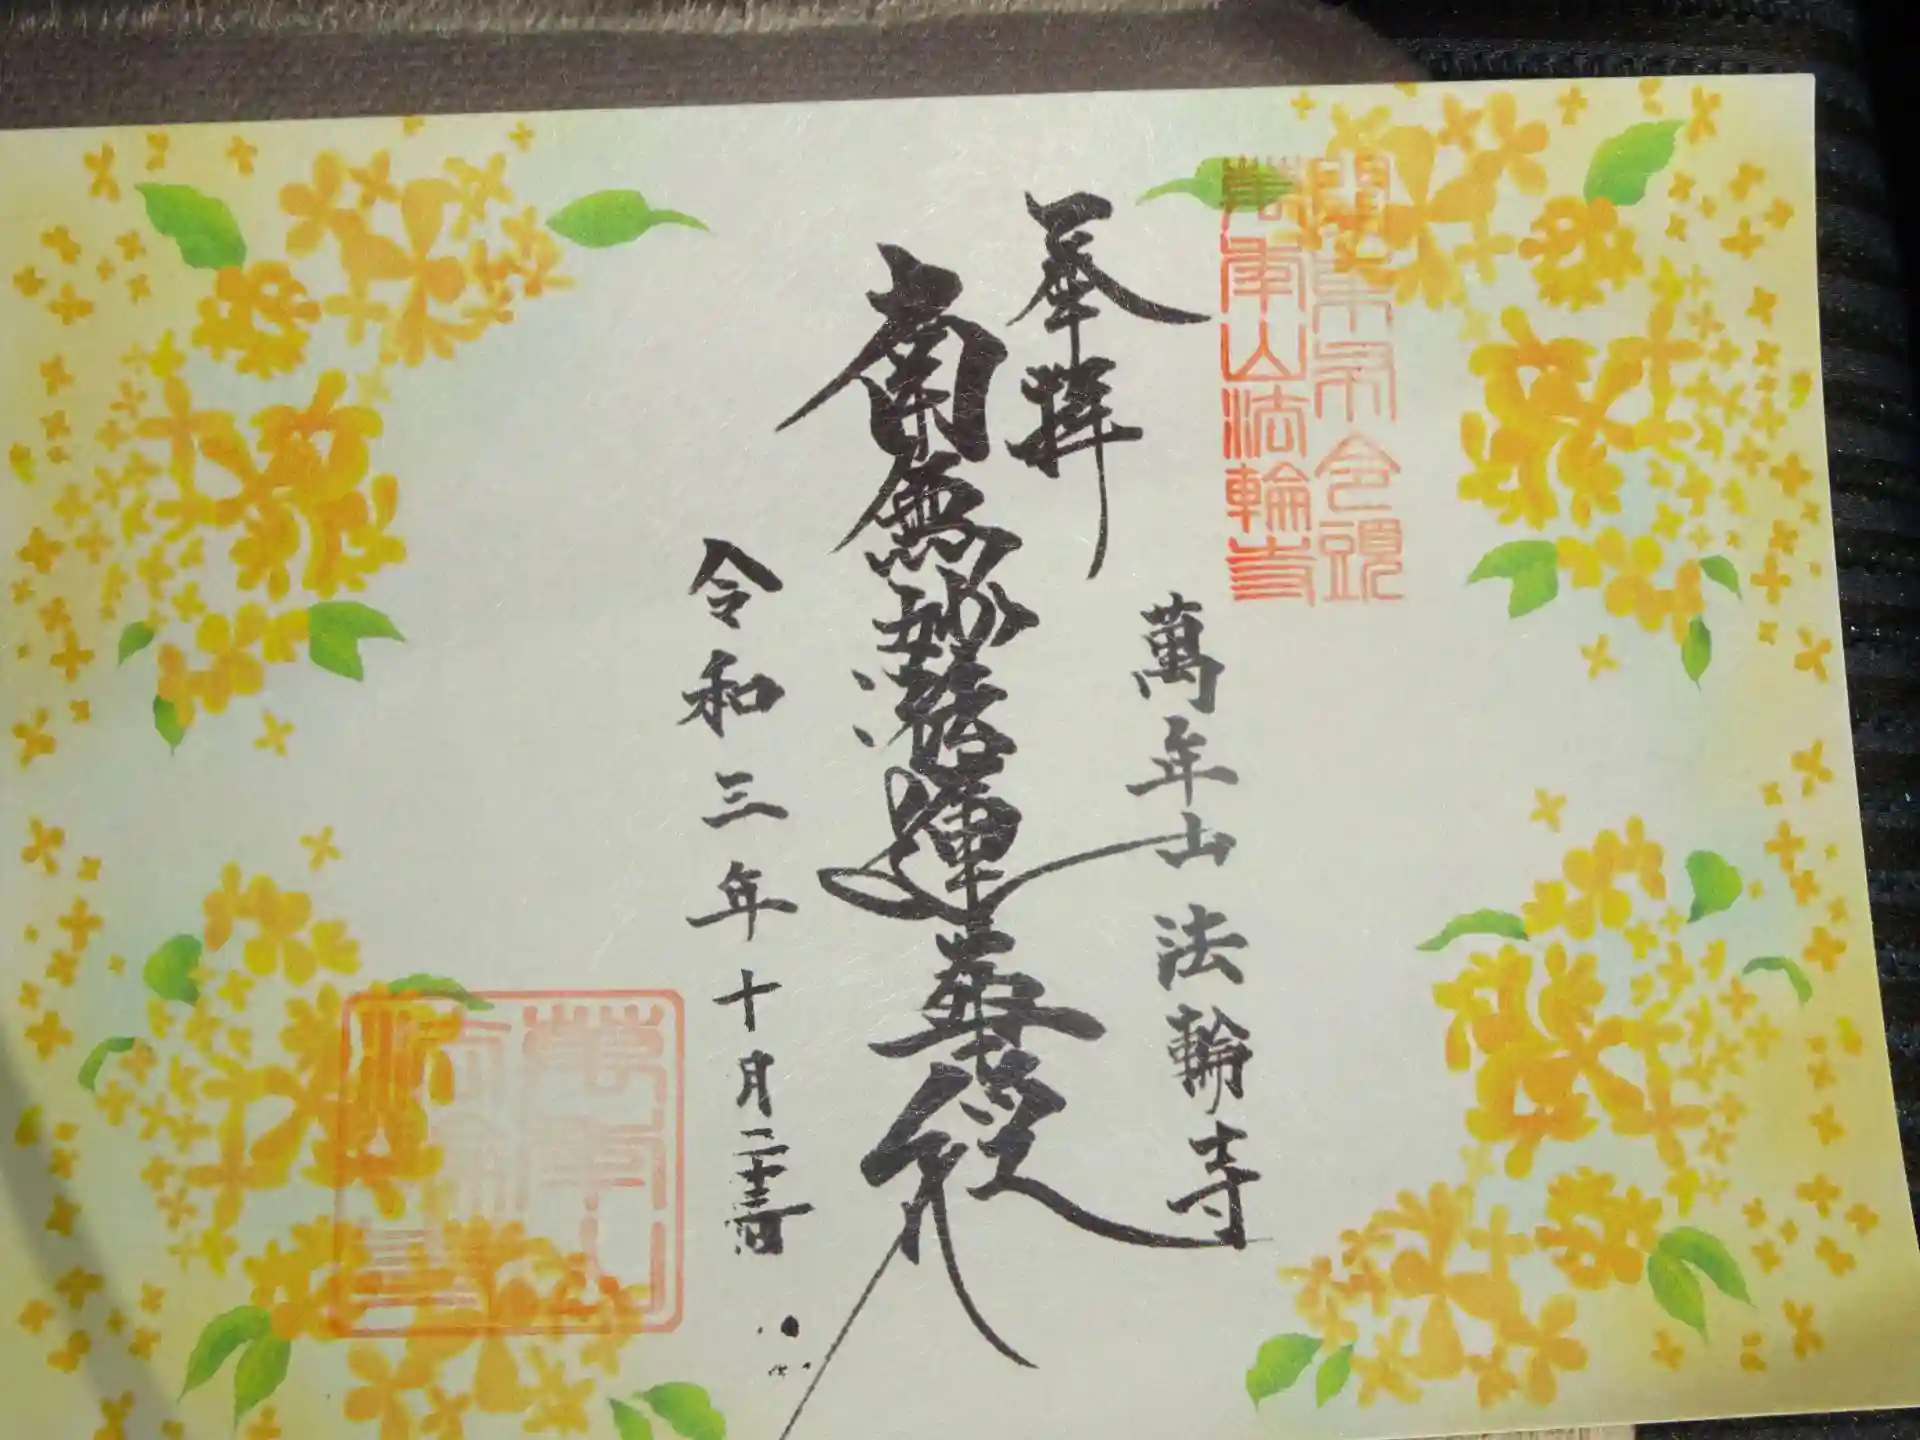 關東布令頭
萬年山法輪寺
萬年山法輪寺
奉拝
南無妙法蓮華経
令和三年十月二十三
萬年山